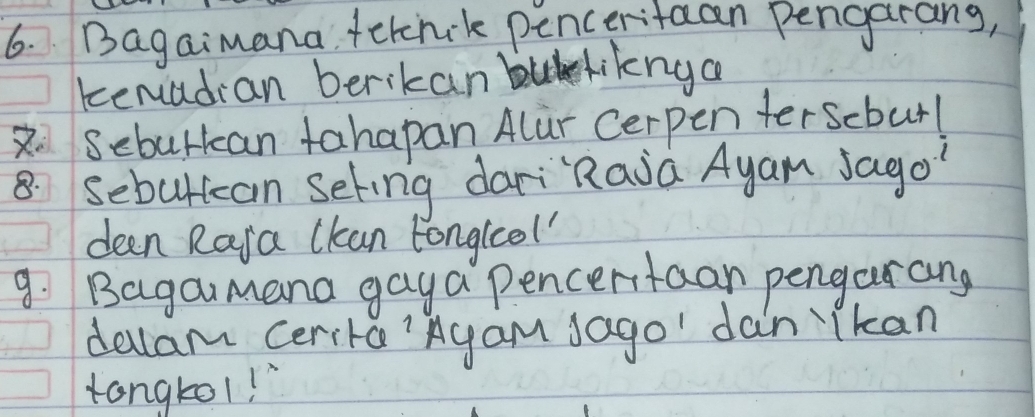 6. Bagaimana tekhnik penceritaan pengarang,
kemudian berikan buktiknya
7. Sebutkan tahapan Alur Cerpen tersebut!
8. Sebutkan Seting dari 'Raja Ayam Jago'
dan Raja Ikan tongkol'
9. Bagaimana gaya penceritaan pengarang
dalam Cerita 'Ayam Jago' dan 'ikan
tongkol!'